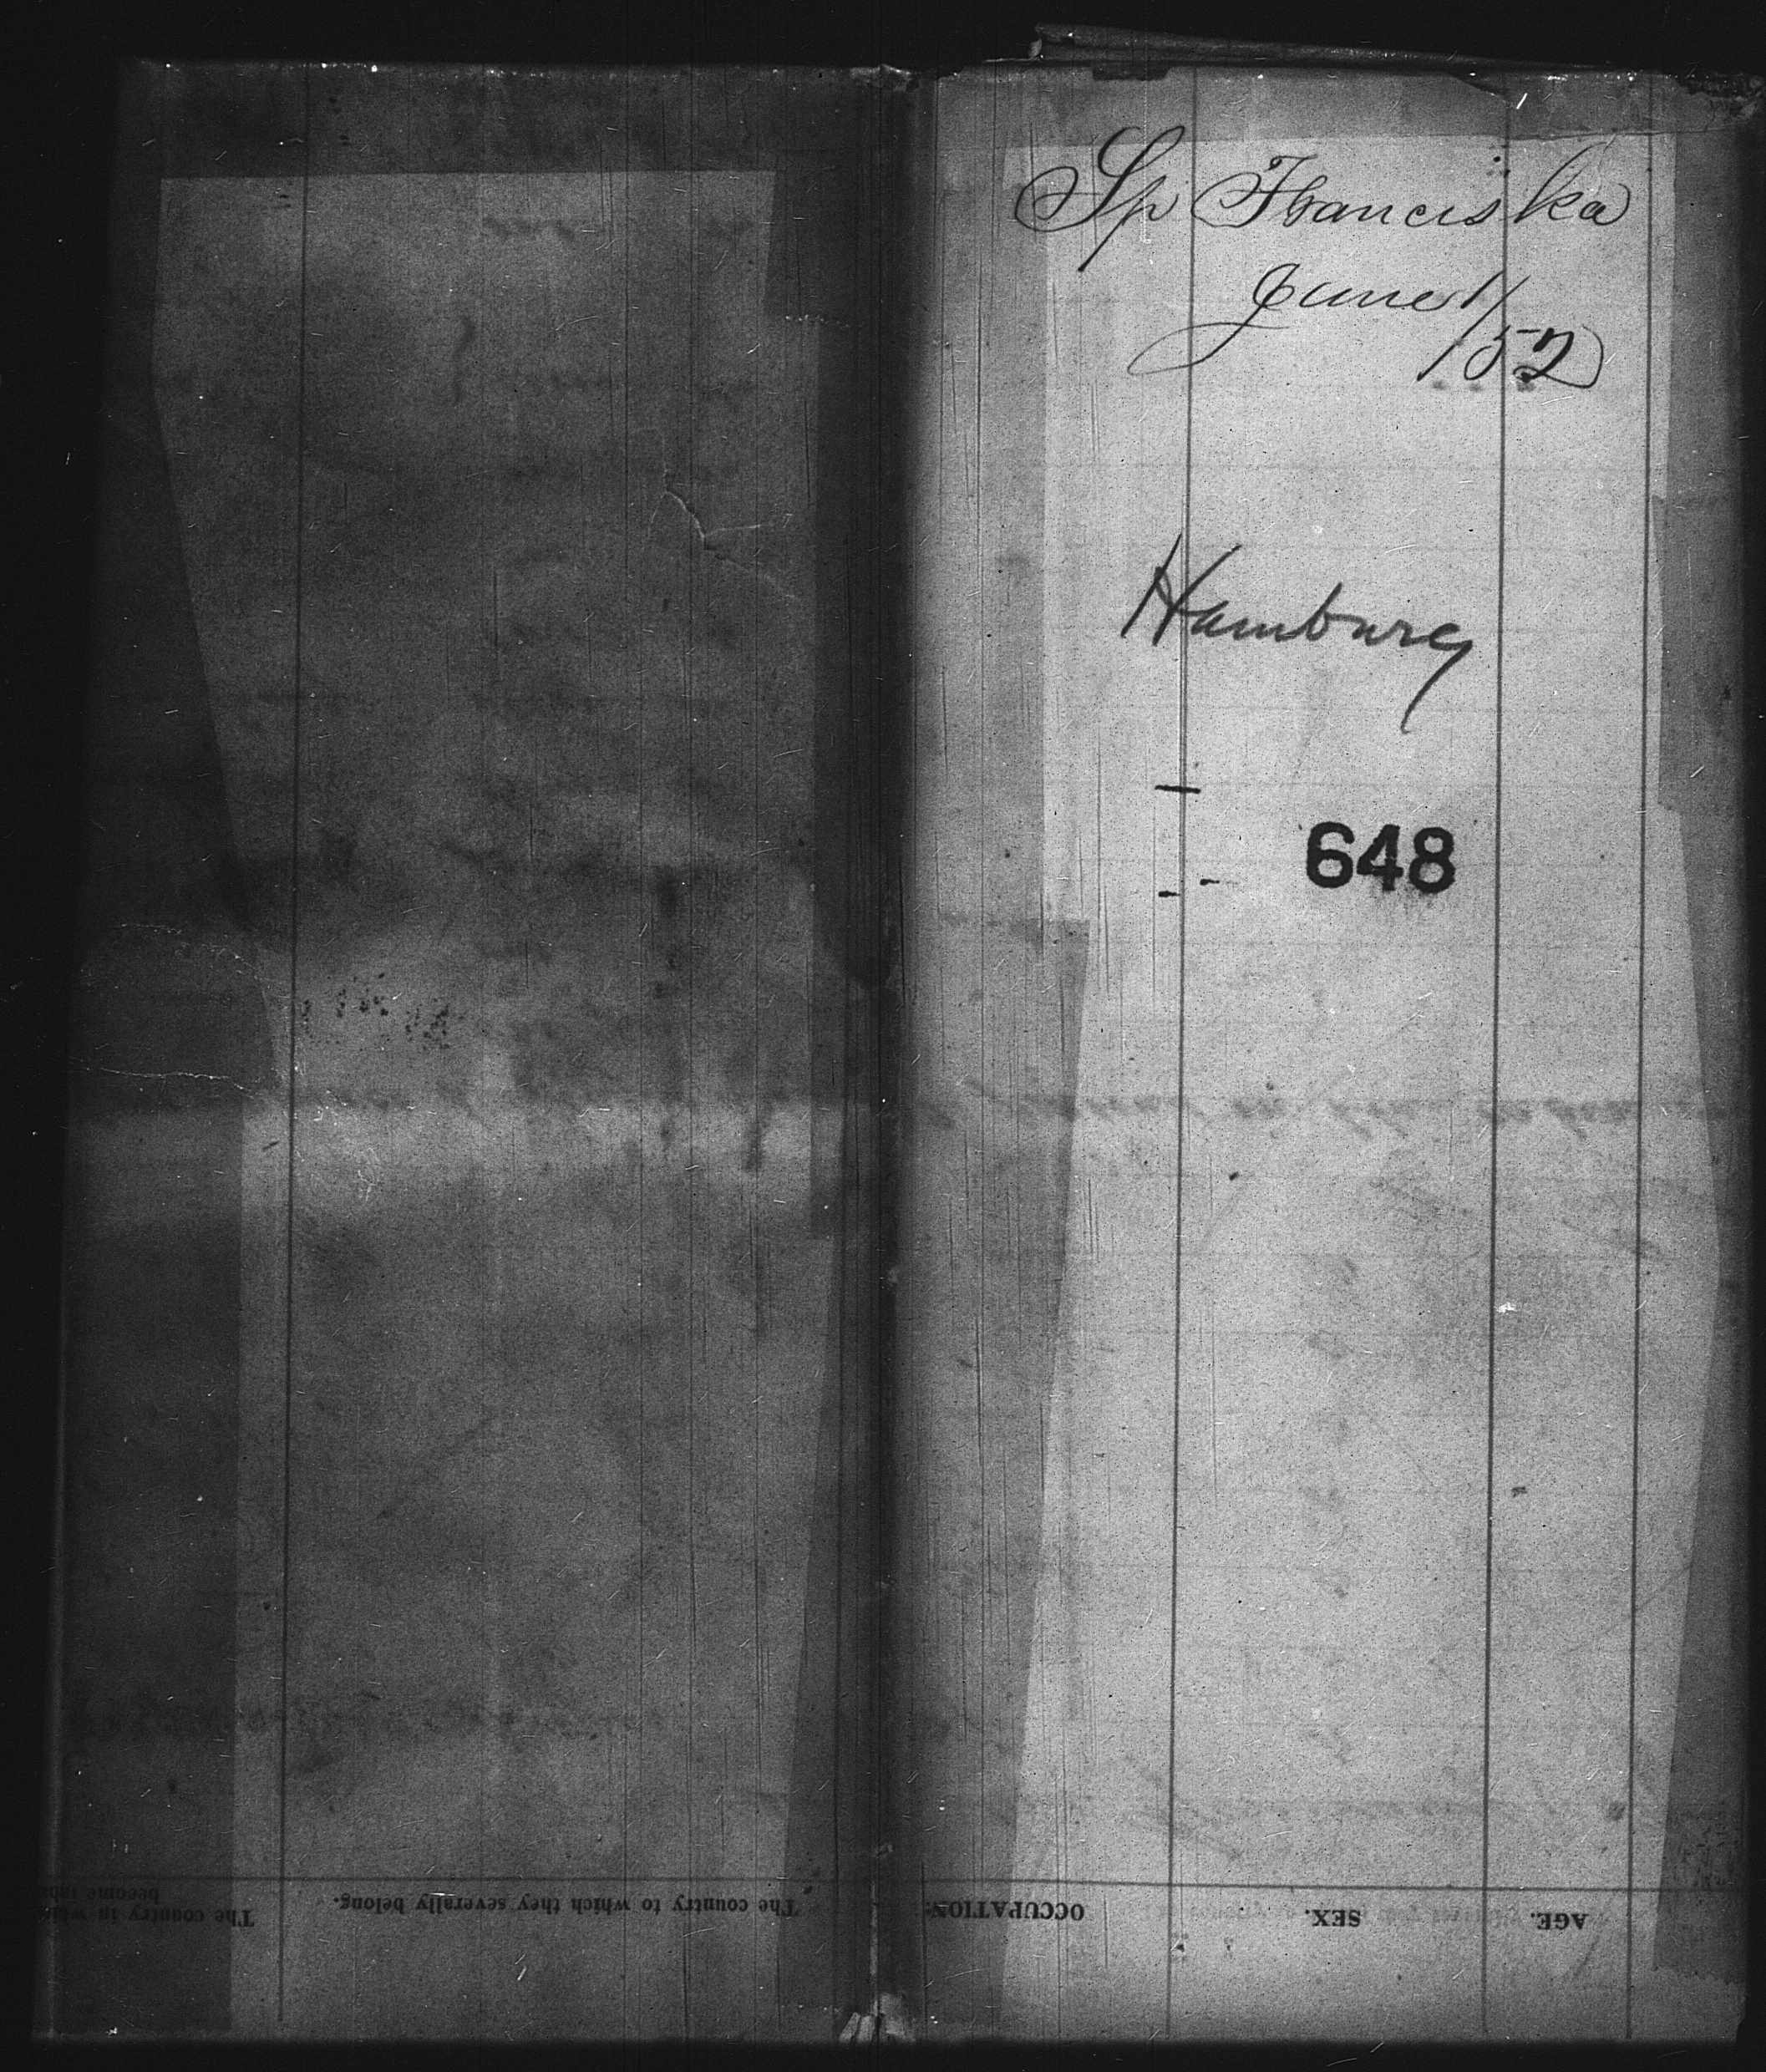 Sp Franciska
June 1/52
Hamburg
648
AGE.
SEX.
OCCUPATION.
The country to which they severally belong.
The country in
become